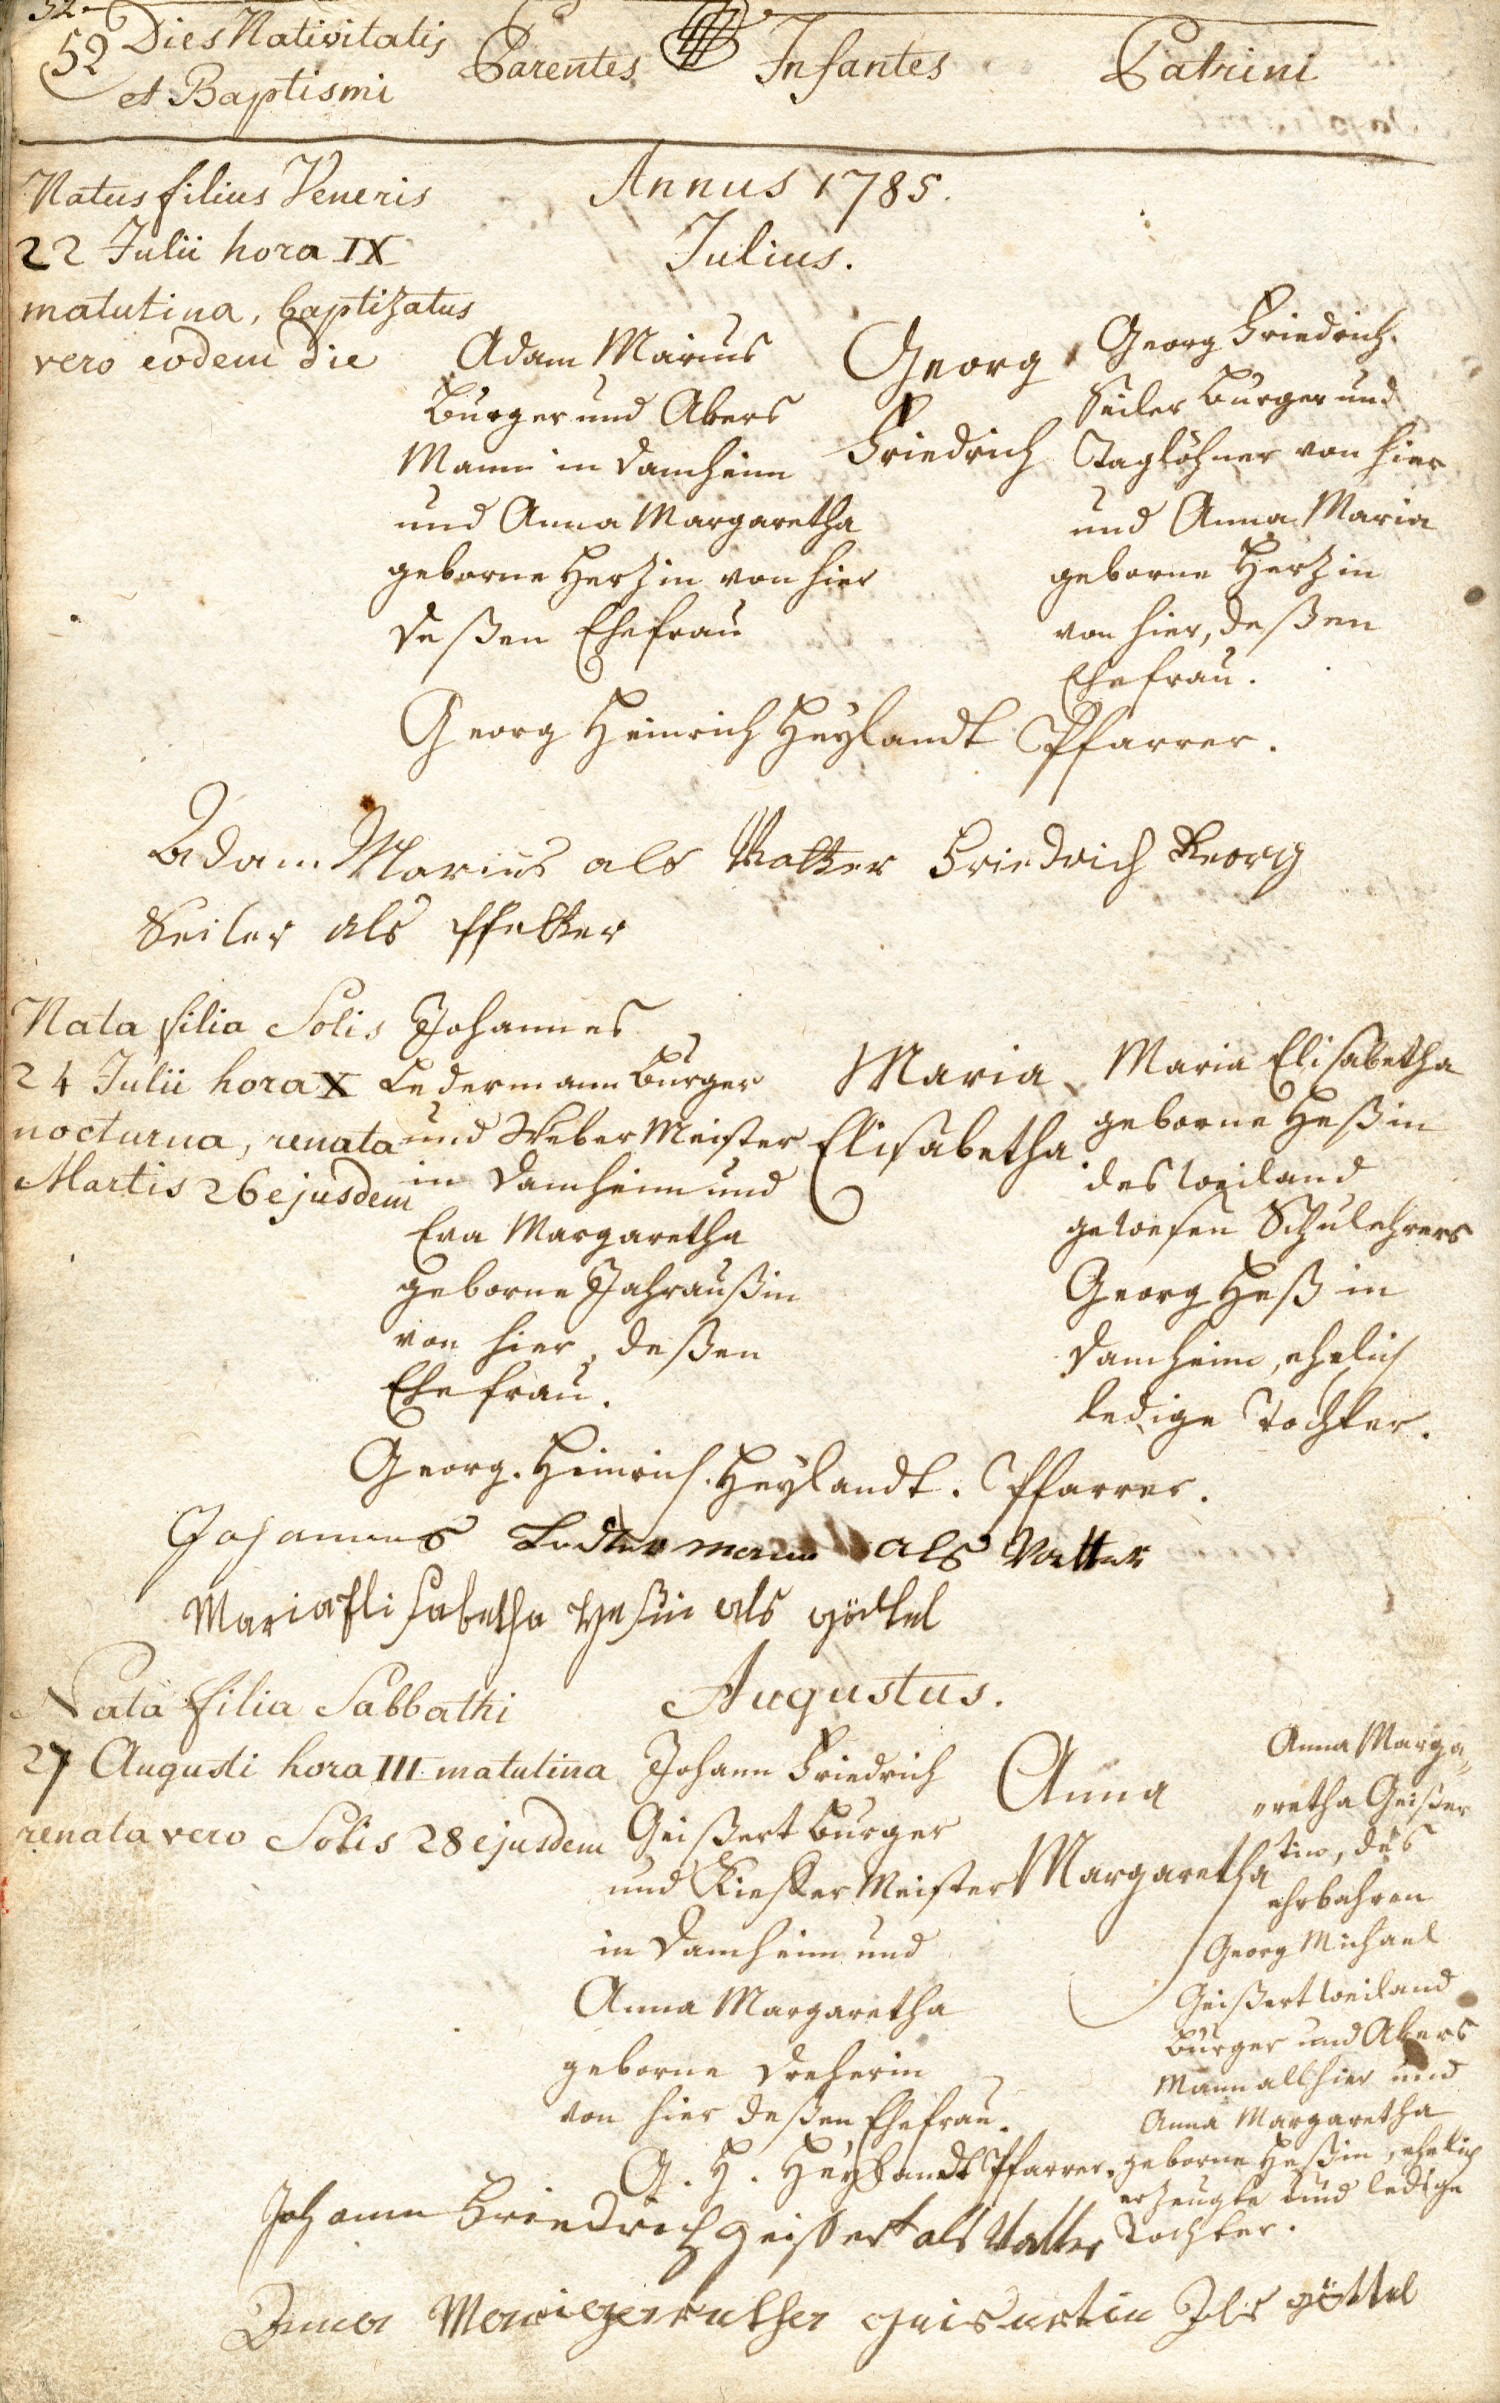 52
Dies Nativitatis
et Baptismi
Parentes
Infantes
Patrini
Annus 1785.
Julius.
Natus filius Veneris
22 Julii hora IX
matutina, baptizatus
vero eodem die
Adam Marius
Burger und Akers
Mann in Damheim
und Anna Margaretha
geborne Herzin von hier
deßen Ehefrau
Georg
Friedrich
Georg Friedrich
Seiler Burger und
Taglöhner von hier
und Anna Maria
geborne Herzin
von hier, deßen
Ehefrau.
Georg Heinrich Heylandt Pfarrer.
Adam Marius als Vatter Friedrich Georg
Seiler als Pfetter
Nata filia Solis
24 Julii hora X
nocturna, renata
Martis 26 ejusdem
Johannes
Ledermann Burger
und Weber Meister
in Damheim und
Eva Margaretha
geborne Jahraußin
von hier, deßen
Ehefrau.
Maria
Elisabetha
Maria Elisabetha
geborne Heßin
des weiland
gewesen Schulehrers
Georg Heß in
Damheim, ehelich
ledige Tochter.
Georg. Heinrich. Heylandt. Pfarrer.
Johannes Ledermann als Vatter
Maria Elisabetha Heßin als gödtel
Augustus.
Nata filia Sabbathi
27 Augusti hora III matutina
renata vero Solis 28 ejusdem
Johann Friedrich
Geißert Burger
und Kieffer Meister
in Damheim und
Anna Margaretha
geborne Dreherin
von hier deßen Ehefrau.
Anna
Margaretha
Anna Marga„
„retha Geißer
tin, des
ehrbahren
Georg Michael
Geißert weiland
Burger und Akers
Mann allhier und
Anna Margaretha
geborne Heßin, ehelich
erzeugte und ledige
Tochter.
G. H. Heylandt Pfarrer.
Johann Friedrich Geissert als Vatter
göttel